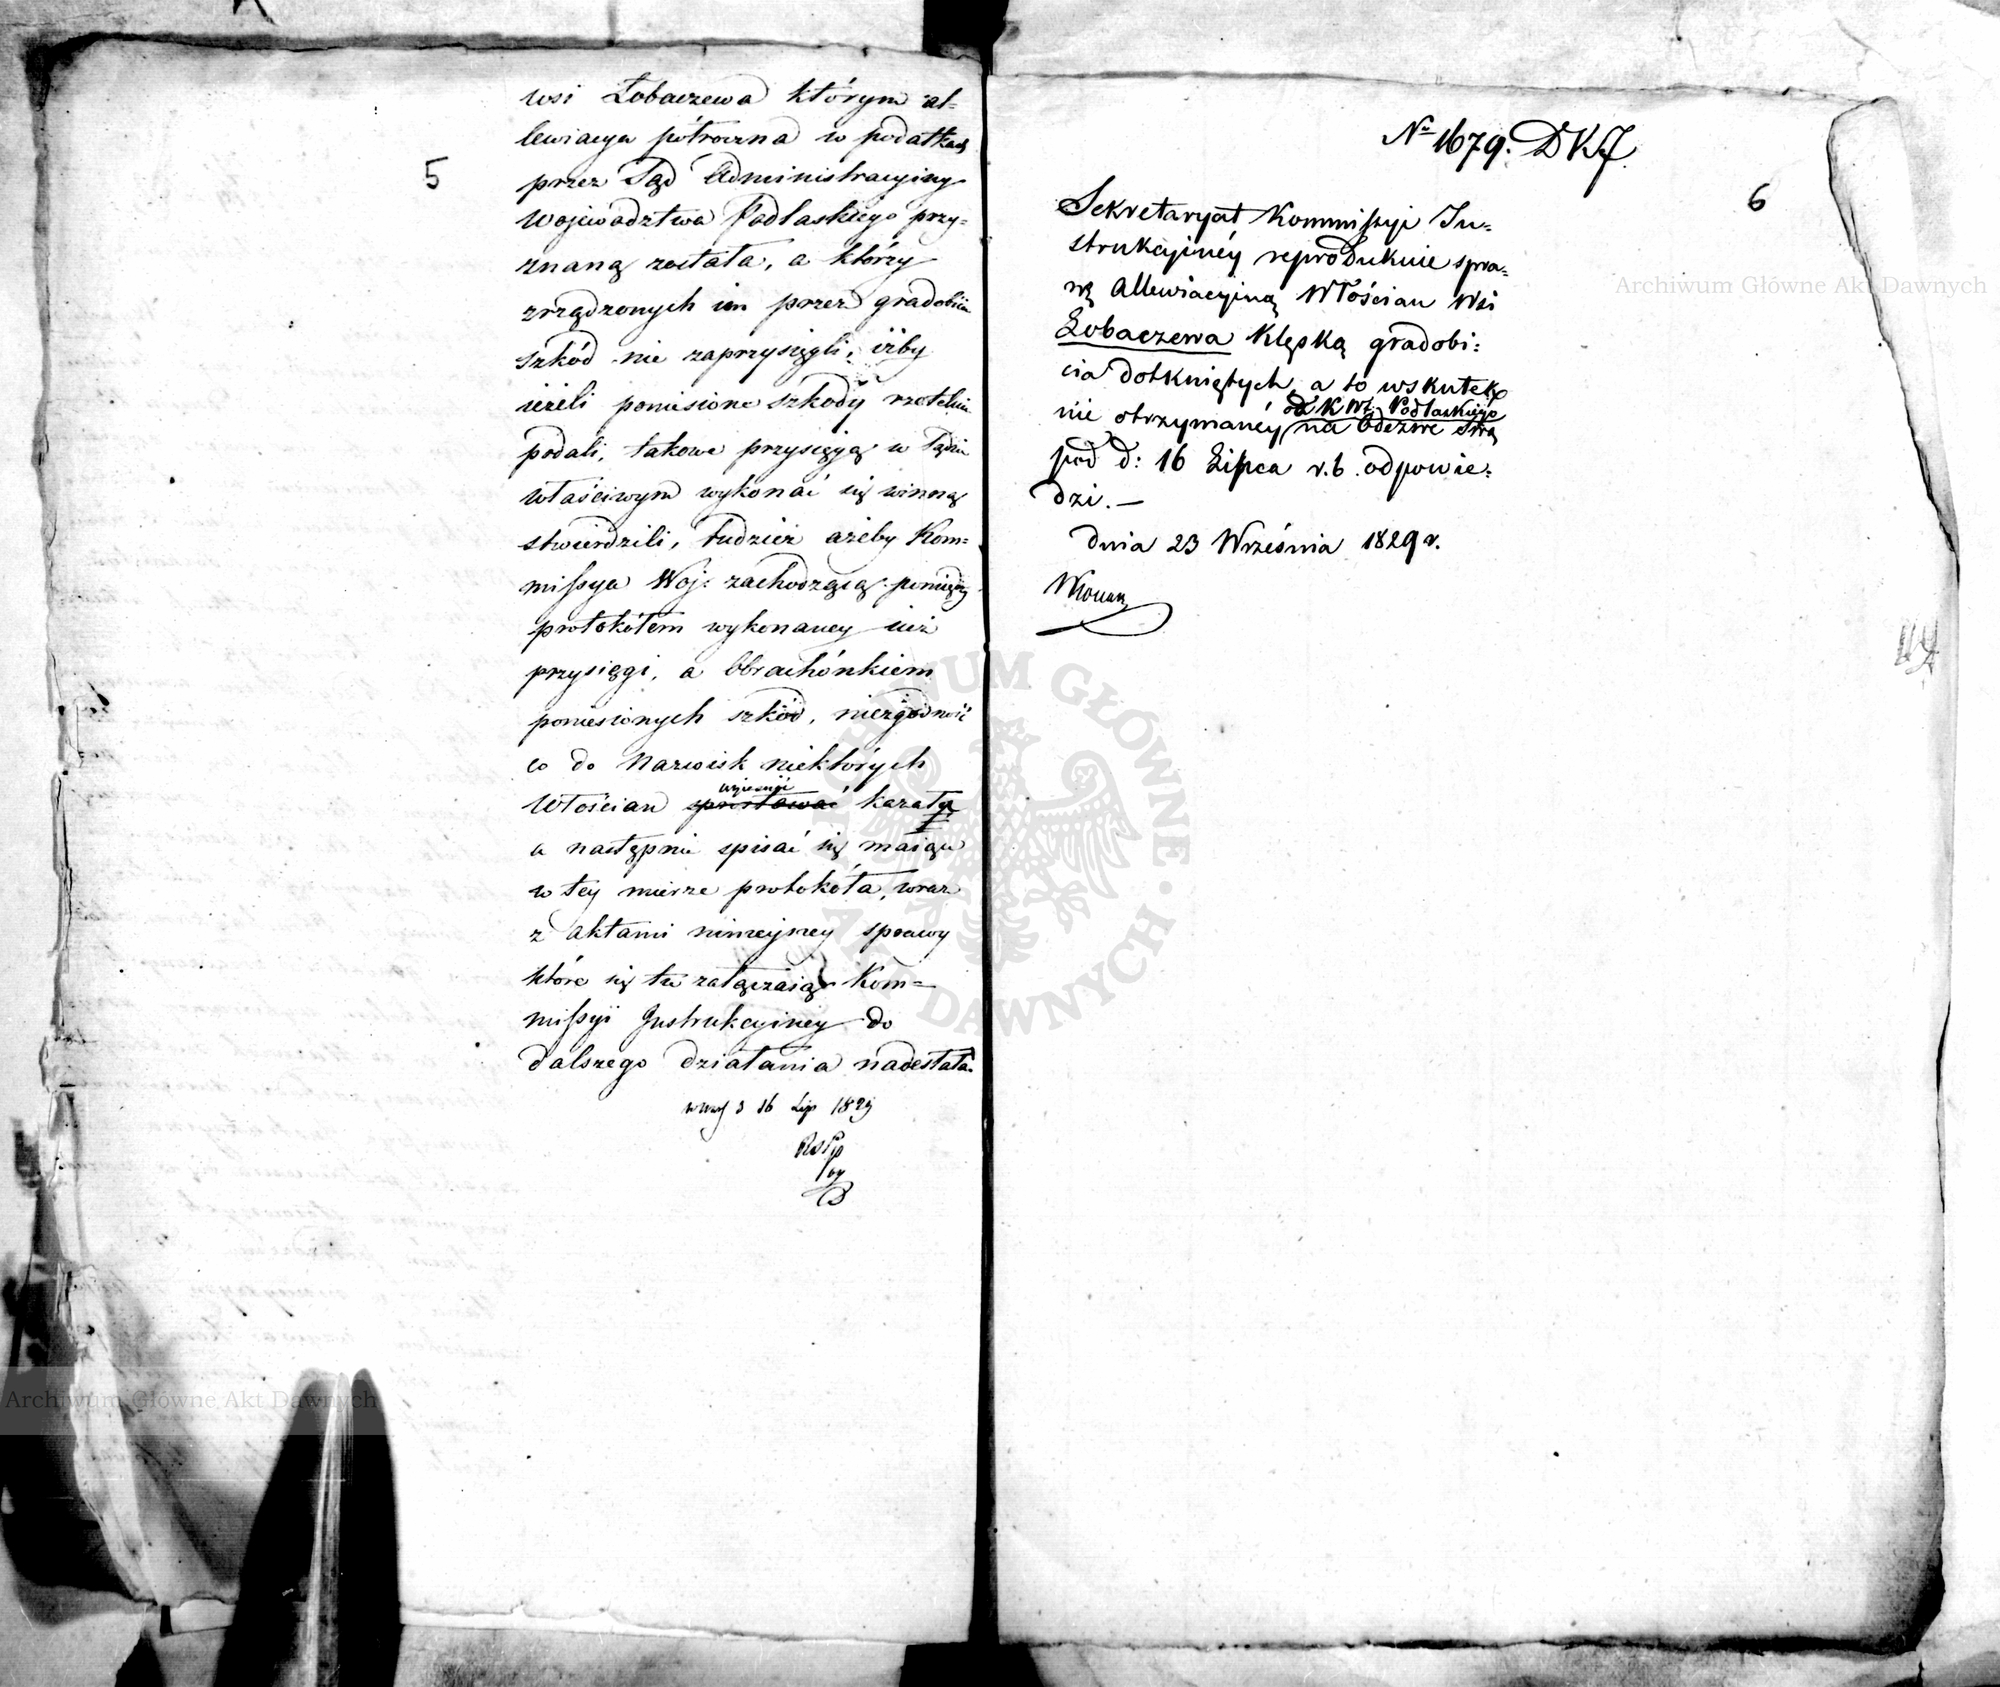 5
wsi Łobaczewa którym al=
lewiacya pótroczna w podatkach
przez Sąd Administracyiny
Województwa Podlaskiego przy=
znaną została, a którzy
zrządzonych im przez gradobicie
szkód nie zaprzysięgli, iżby
ieżeli poniesione szkody rzetelnie
podali, takowe przysięgą w Sądzie
właściwym wykonać się winną
stwierdzili, tudzież ażeby Kom=
missya Woj: zachodzącą pomiędzy
protokółem wykonaney iuż
przysięgi, a Obrachónkiem
poniesionych szkód, niezgodność
co do Nazwisk niektórych
wyiaśnić
Włościan sprostować kazała
a następnie spisać się maiącu
w tey mierze protokóła, wraz
z aktami ninieyszey sprawy
które się tu załączaią Kom=
missyi Instrukcyiney do
dalszego działania nadesłała.
16 Lip 1829
6
No 1679. DKJ.
Sekretaryat Kommissyi In=
strukcyinéy reprodukuie spra=
wę Allewiacyiną Włościan Wsi
Łobaczewa Klęską gradobi=
cia dotkniętych, a to wskutek
od K. W. Podlaskiego
nie otrzymanéy na Odezwę Swą
pod d: 16 Lipca r. b. odpowie=
dzi.—
dnia 23 Września 1829 r.
Archiwum Główne Akt Dawnych
ARCHIWUM GŁÓWNE AKT DAWNYCH
Archiwum Główne Akt Dawnych